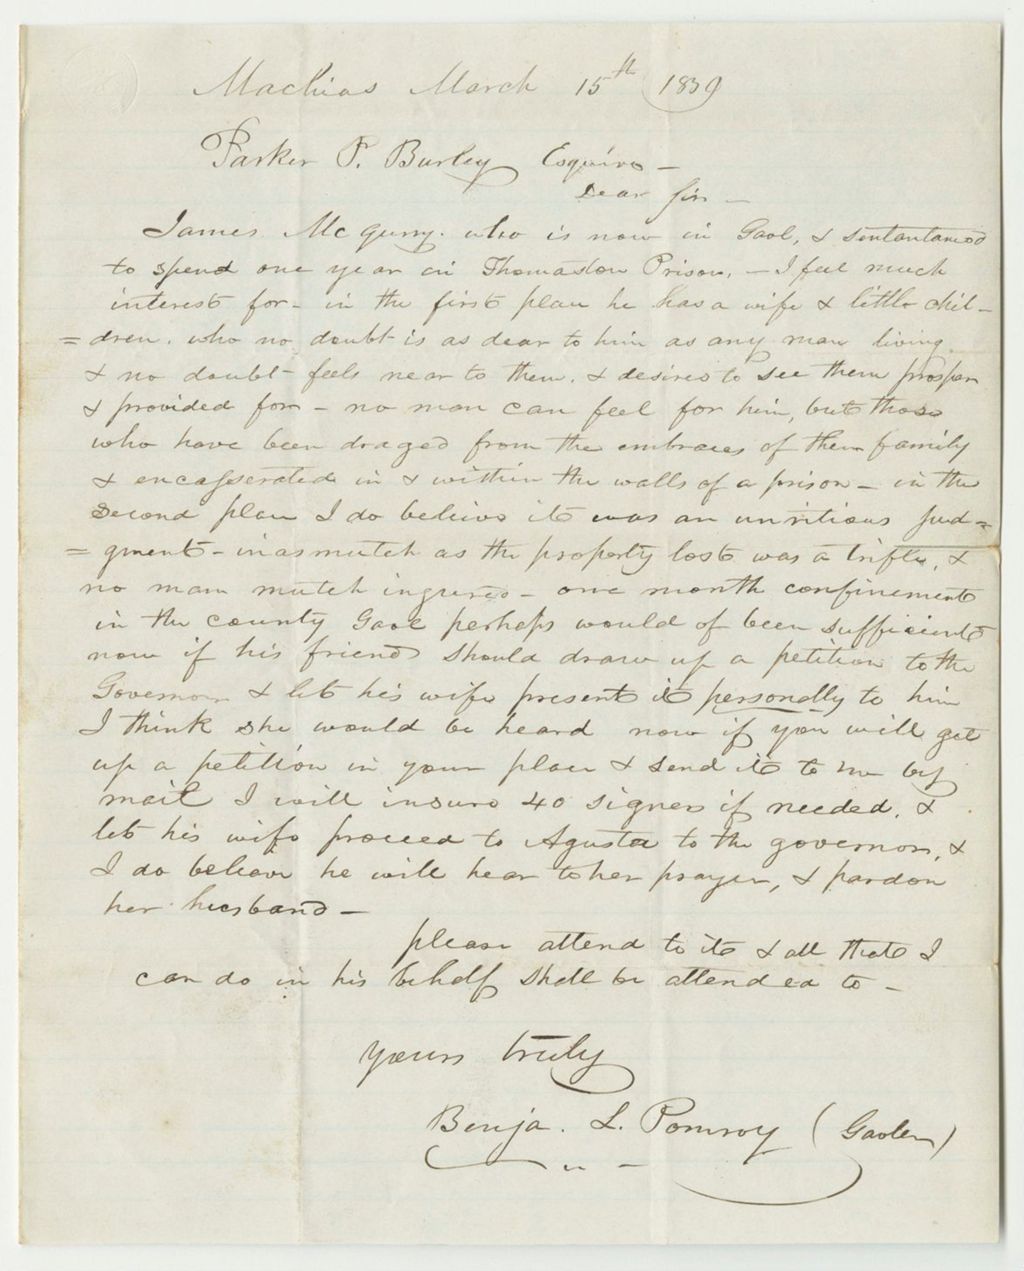 Machias March 15th 1839
Parker P. Burley Esquire -
Dear Sir -
James McGurry. who is now in Gaol, & sentantansed
to spend one year in Thomaston Prison, - I feel much
interest for - in the first place he has a wife & little chil-
= dren. who no doubt is as dear to him as any man living
& no doubt feels near to them. & desires to see them prosper
& provided for - no man can feel for him, but those
who have been draged from the embraces of them family
& encasserated in & within the walls of a prison - in the
second place I do believe it was an unritious jud=
= gment - inasmutch as the property lost was a trifle, &
no man mutch ingured - one month confinement
in the county Gaol perhaps would of been sufficient
now if his friends should draw up a petition to the
Governor & let his wife present it personally to him
I think she would be heard now if you will get
up a petition in your place & send it to me by
mail I will insure 40 signers if needed. &
let his wife proceed to Agusta to the governor, &
I do believe he will hear to her prayer, & pardon
her husband -
please attend to it & all that I
can do in his behalf shall be attended to -
yours truly
Benja. L. Pomroy (Gaoler)